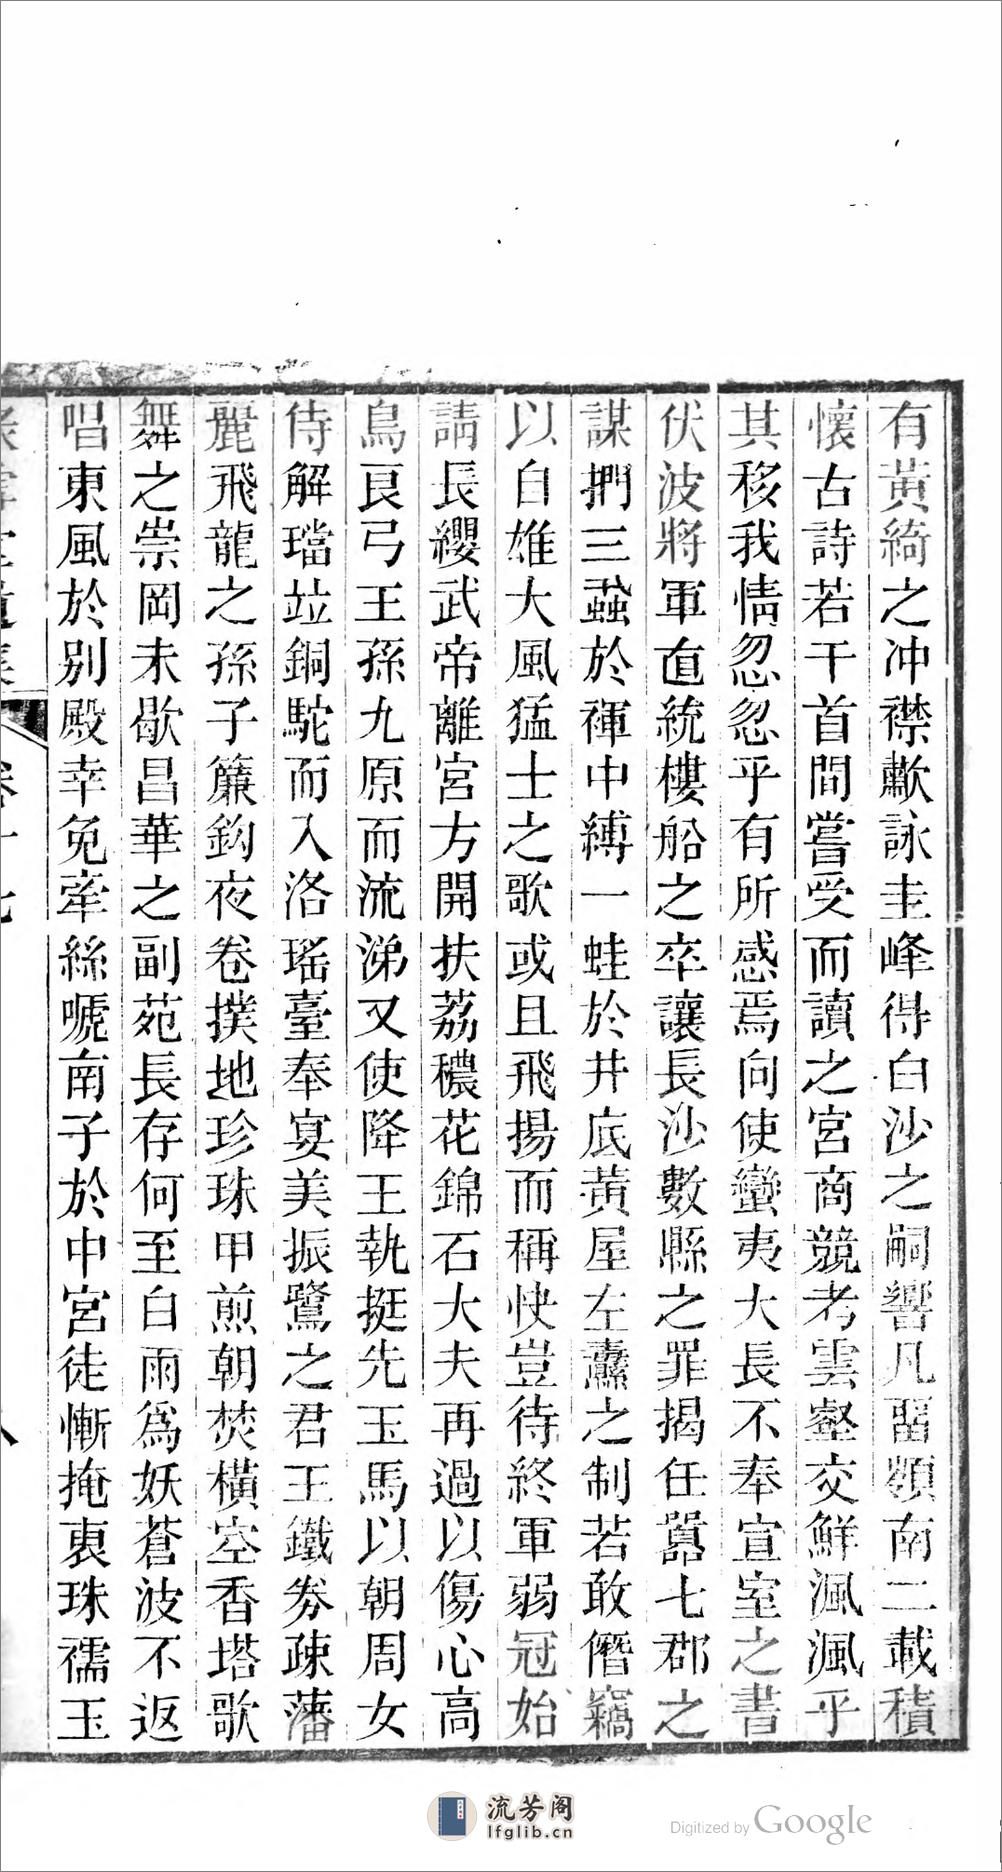 有黃綺之冲襟歗詠圭峰得白沙之嗣響凡畱嶺南二載積
懷古詩若干首間嘗受而讀之宮商競考雲壑交鮮渢渢乎
其移我情忽忽乎有所感焉向使蠻夷大長不奉宣室之書
伏波將軍直統樓船之卒讓長沙數縣之罪揭任囂七郡之
謀捫三蝨於褌中縛一蛙於井底黃屋左纛之制若敢僭竊
以自雄大風猛士之歌或且飛揚而稱快豈待終軍弱冠始
請長纓武帝離宮方開扶荔穠花錦石大夫再過以傷心高
鳥良弓王孫九原而流涕又使降王執挺先玉馬以朝周女
侍解璫竝銅駝而入洛瑤臺奉宴美振鷺之君王鐵券疎藩
麗飛龍之孫子簾鈎夜卷撲地珍珠甲煎朝焚橫空香塔歌
舞之崇岡未歇昌華之副苑長存何至白雨爲妖蒼波不返
唱東風於別殿幸免牽絲嗁南子於中宮徒慚掩褎珠襦玉
卷十七
八
流芳阁
lfglib.cn
Digitized by Google